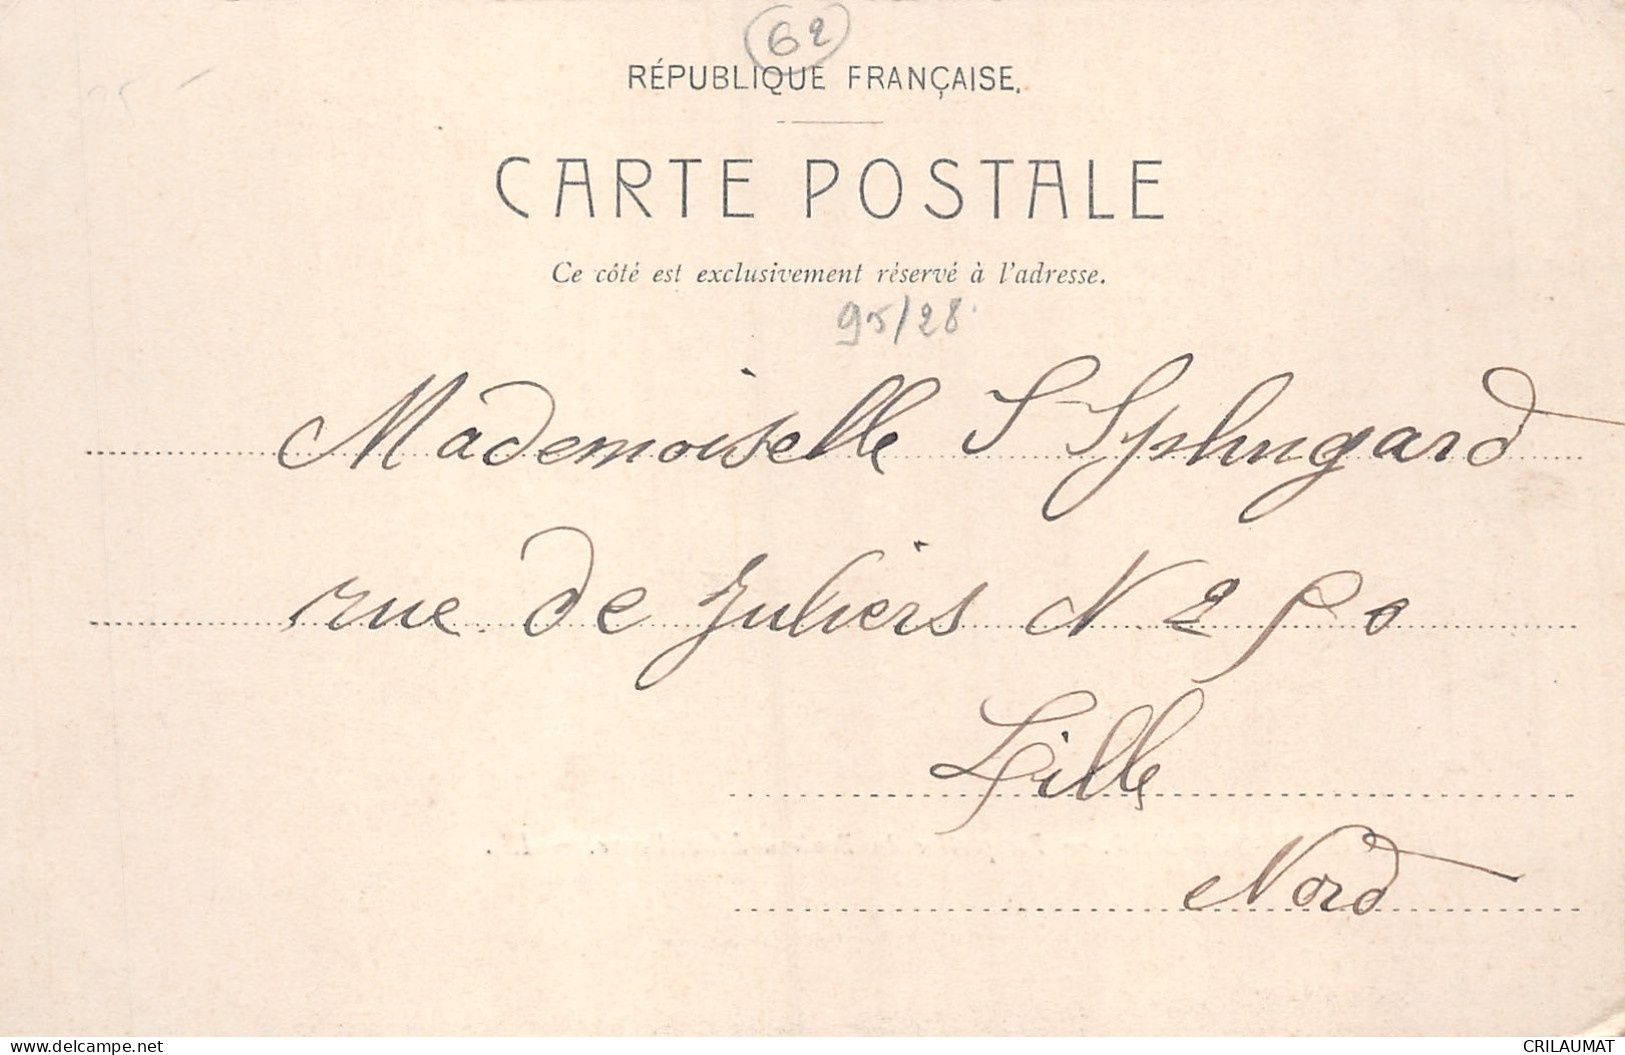 62
RÉPUBLIQUE FRANÇAISE.
CARTE POSTALE
Ce côté est exclusivement réservé à l'adresse.
95/28
Mademoiselle S
rue de Juliers N 250
Lille
Nord
delcampe.net
CRILAUMAT